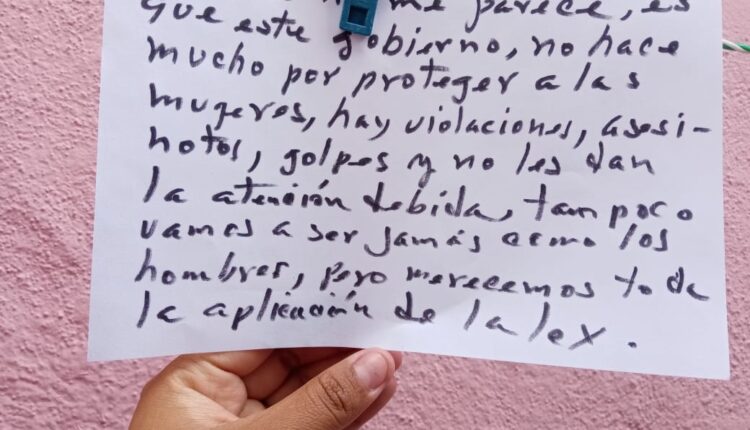 me parece, es
que este gobierno, no hace
mucho por proteger a las
mugeres, hay violaciones, asesi-
notos, golpes y no les dan
la atención debida, tampoco
vamos a ser jamás como los
hombres, pero merecemos toda
la aplicación de la lex.